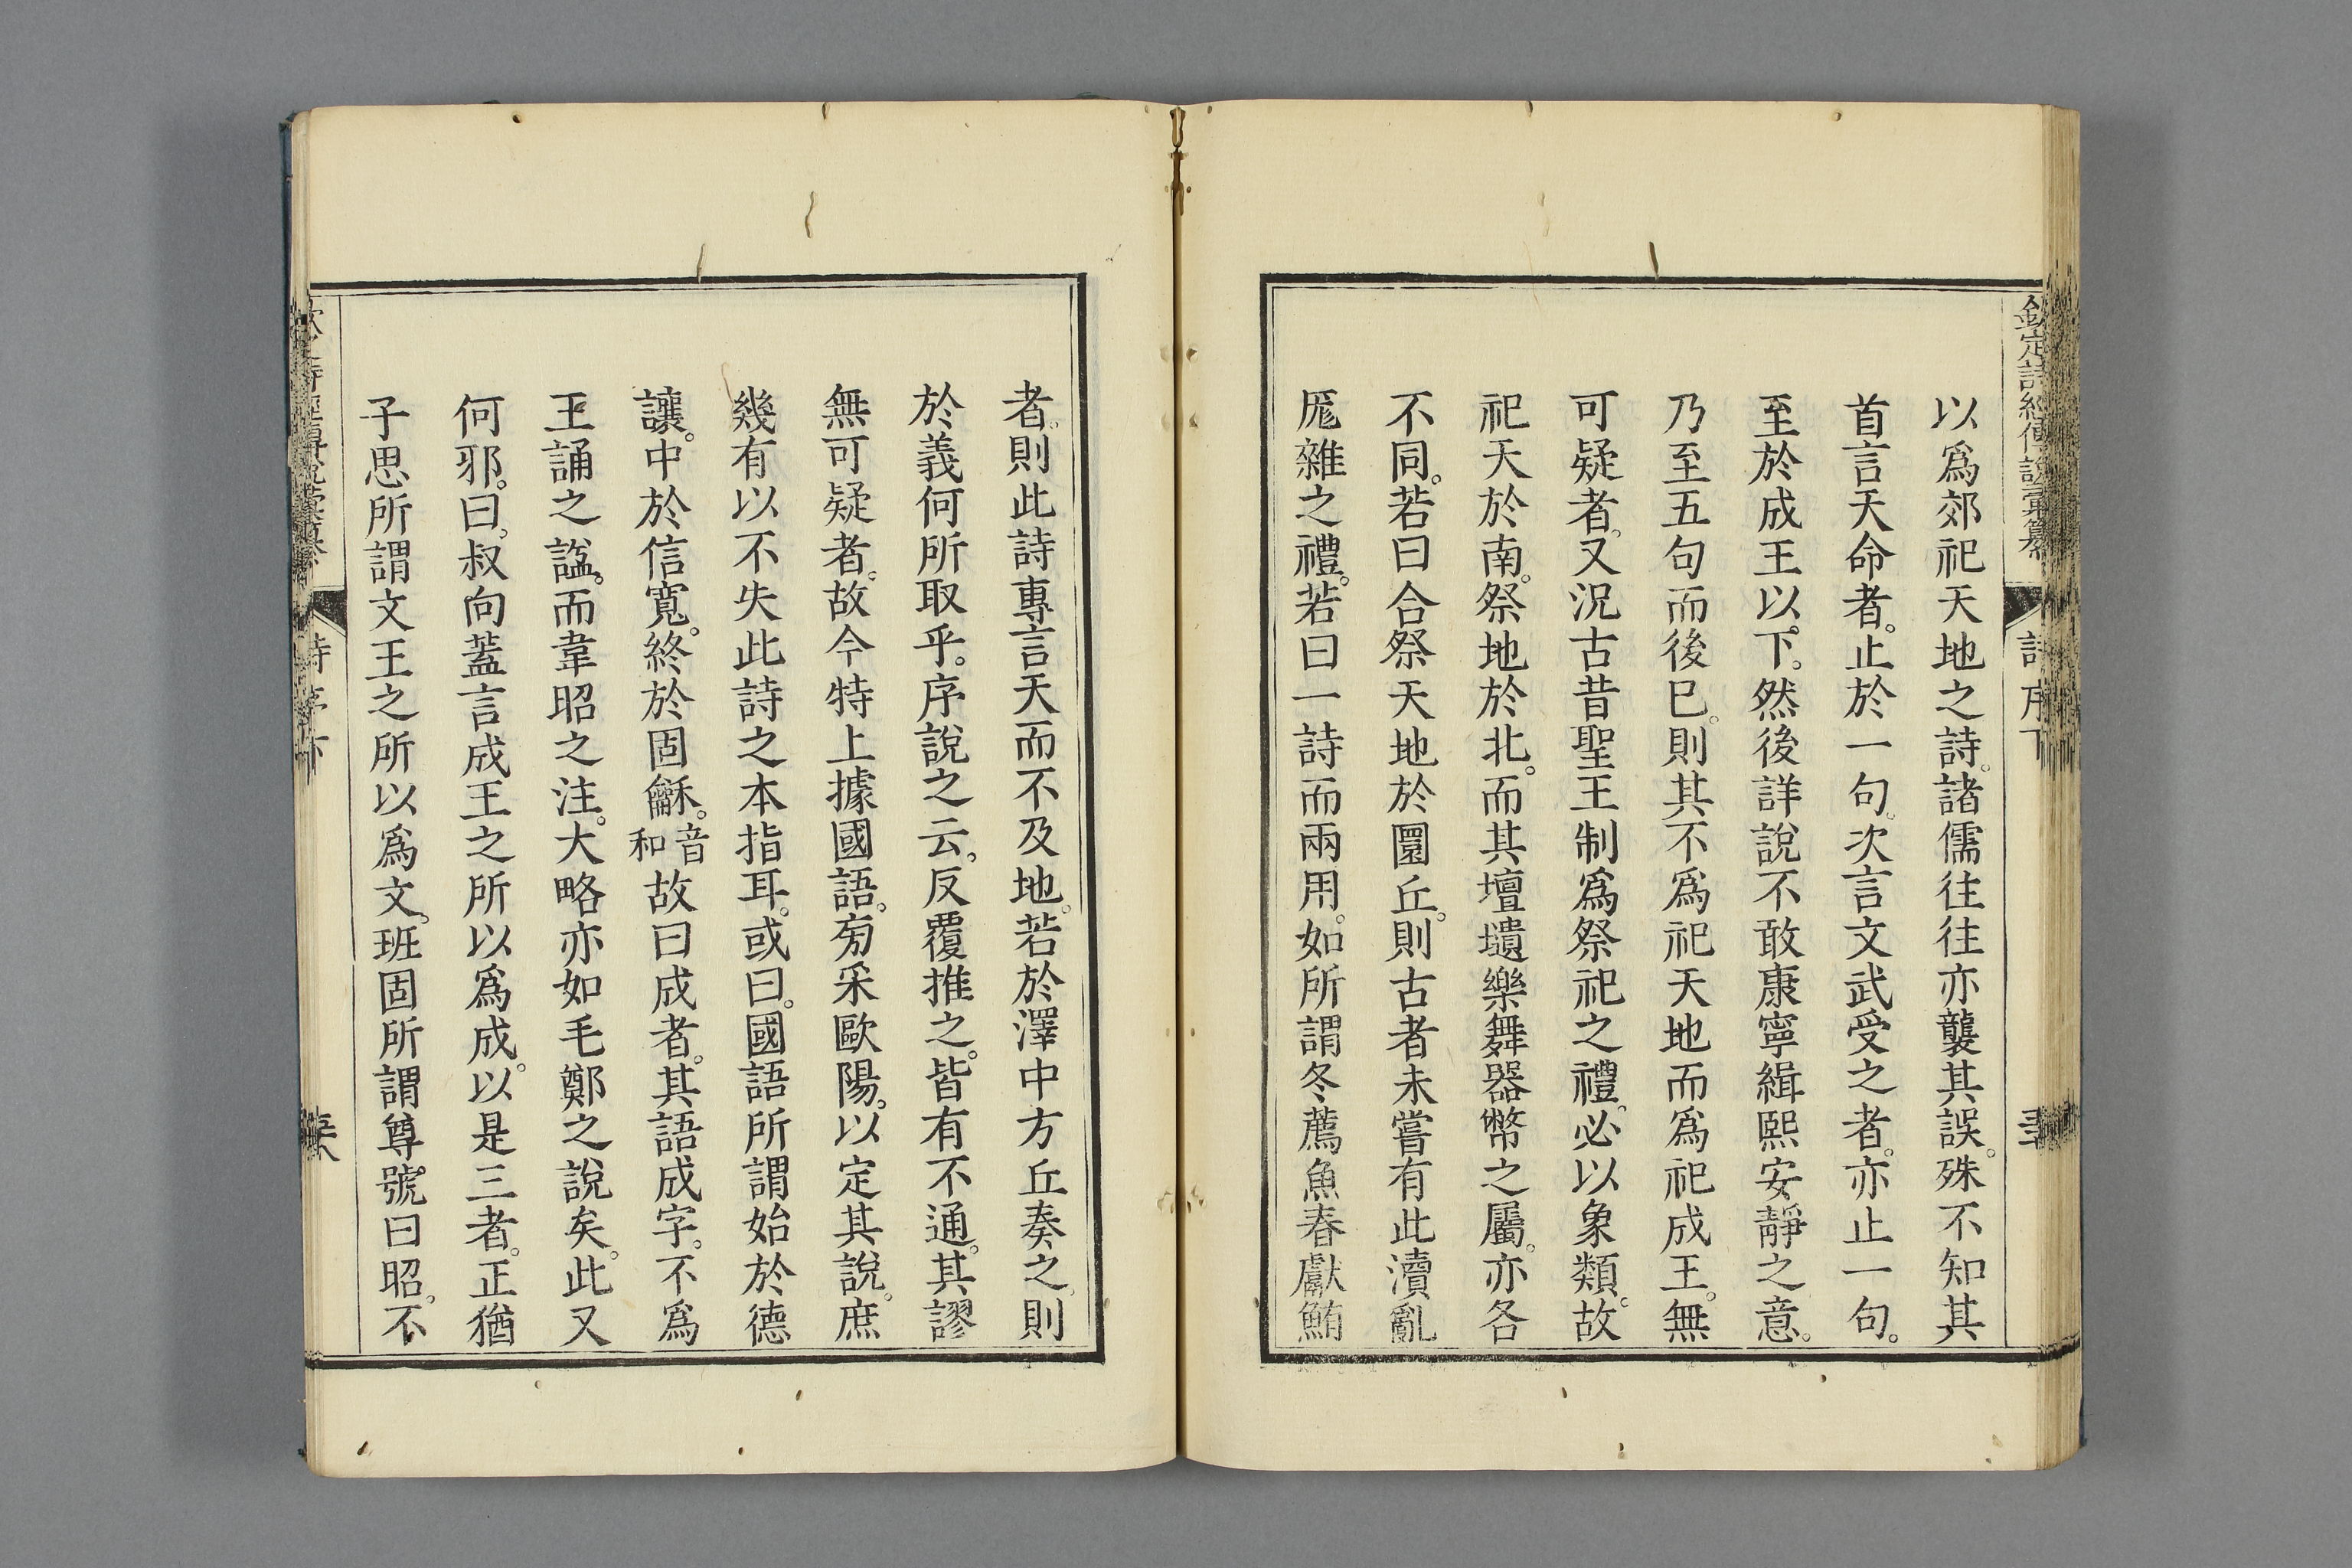 欽定詩經傳說彙纂
詩序下
以爲郊祀天地之詩。諸儒往往亦襲其誤。殊不知其
首言天命者。止於一句。次言文武受之者。亦止一句。
至於成王以下。然後詳說不敢康寧緝熙安靜之意。
乃至五句而後已。則其不爲祀天地而爲祀成王。無
可疑者。又況古昔聖王制爲祭祀之禮。必以象類。故
祀天於南。祭地於北。而其壇壝樂舞器幣之屬。亦各
不同。若曰合祭天地於圜丘。則古者未嘗有此瀆亂
厖雜之禮。若曰一詩而兩用。如所謂冬薦魚春獻鮪
者。則此詩專言天而不及地。若於澤中方丘奏之。則
於義何所取乎。序說之云。反覆推之。皆有不通。其謬
無可疑者。故今特上據國語。旁采歐陽。以定其說。庶
幾有以不失此詩之本指耳。或曰。國語所謂始於德
讓。中於信寬。終於固龢。音和故曰成者。其語成字。不爲
王誦之諡。而韋昭之注。大略亦如毛鄭之說矣。此又
何邪。曰。叔向蓋言成王之所以爲成。以是三者。正猶
子思所謂文王之所以爲文。班固所謂尊號曰昭。不
詩序下